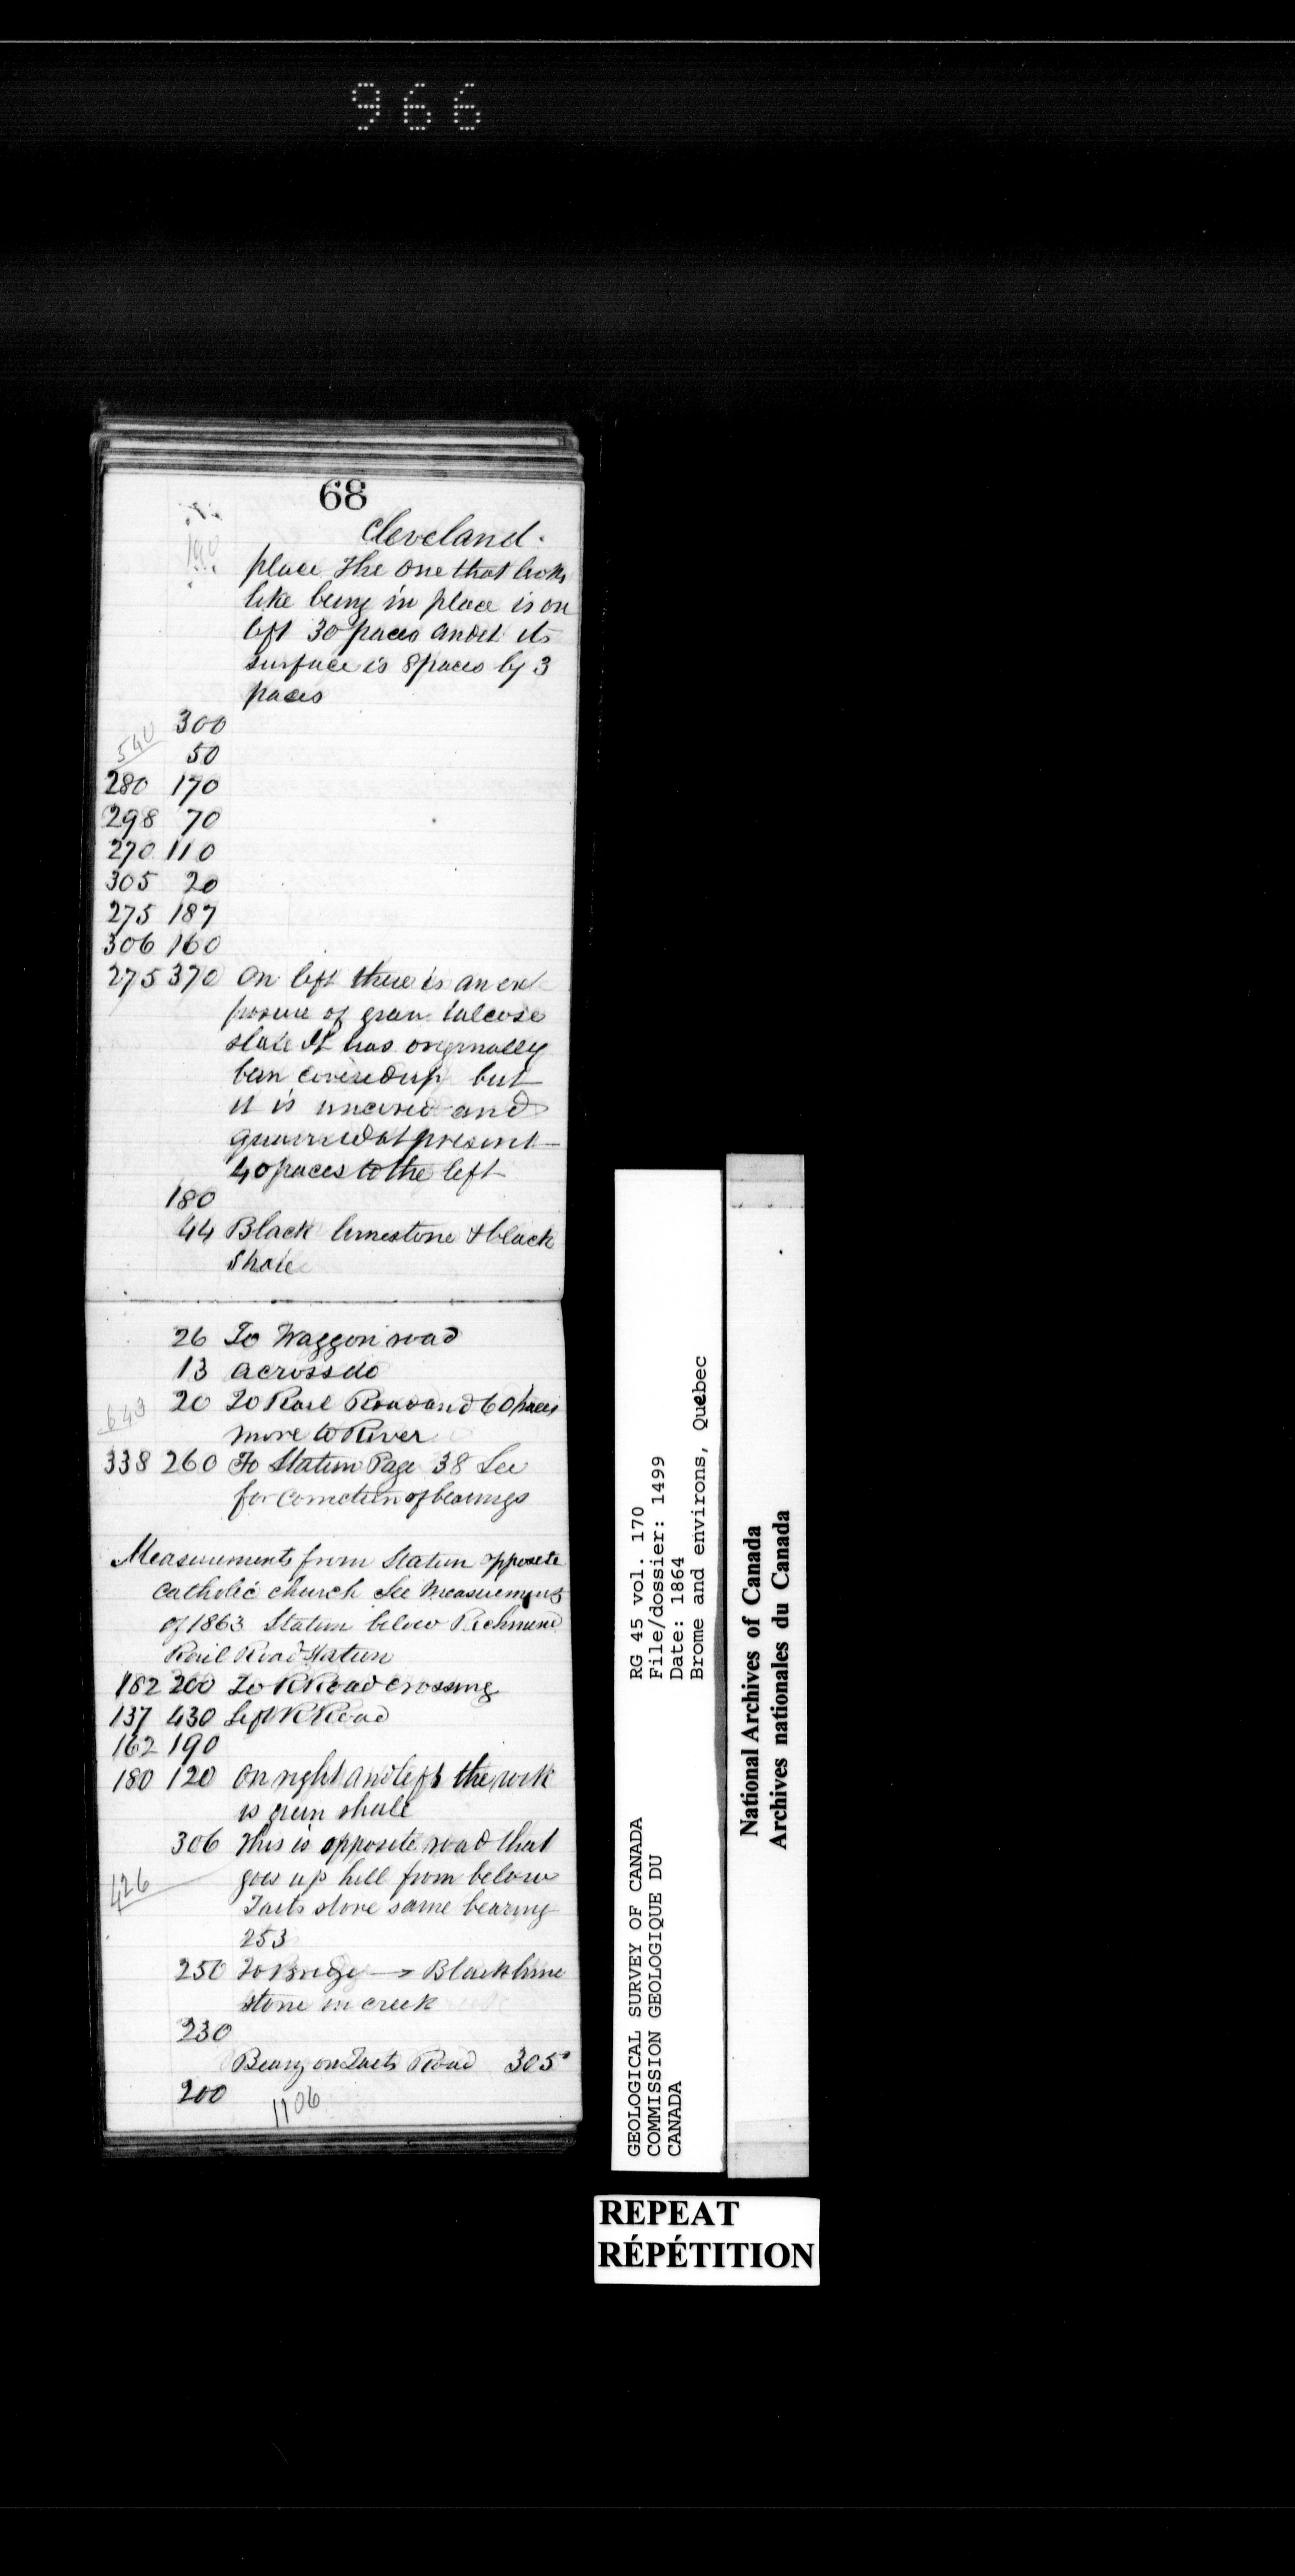 966
68
Cleveland.
190
place The one that looks
like being in place is on
left 30 paces and its
surface is 8 paces by 3
paces
300
540
50
280 170
298 70
270 110
305 20
275 187
306 160
275 370 On left there is an ex
posure of green talcose
slate It has originally
ben covered up but
it is uncovred and
quarried at present
40 paces to the left
180
44 Black limestone & black
Shale
26 To Waggon road
13 across do
643
20 To Rail Road and 60 paces
more to River
338 260 To Station Page 38 See
for correction of bearings
Measurements from Station opposite
Catholic church See Measurements
of 1863 Station below Richmond
Rail Road Station
162 200 To R Road crossing
137 430 Left R Road
162 190
180 120 On right and left the rock
is green shale
306 This is opposite road that
426
goes up hill from below
Taits store same bearing
253
250 To Bridge → Black lime
stone in creek
230
Bearing on Taits Road 305°
200
1106
GEOLOGICAL SURVEY OF CANADA
COMMISSION GEOLOGIQUE DU
CANADA
RG 45 vol. 170
File/dossier: 1499
Date: 1864
Brome and environs, Quebec
National Archives of Canada
Archives nationales du Canada
REPEAT
RÉPÉTITION